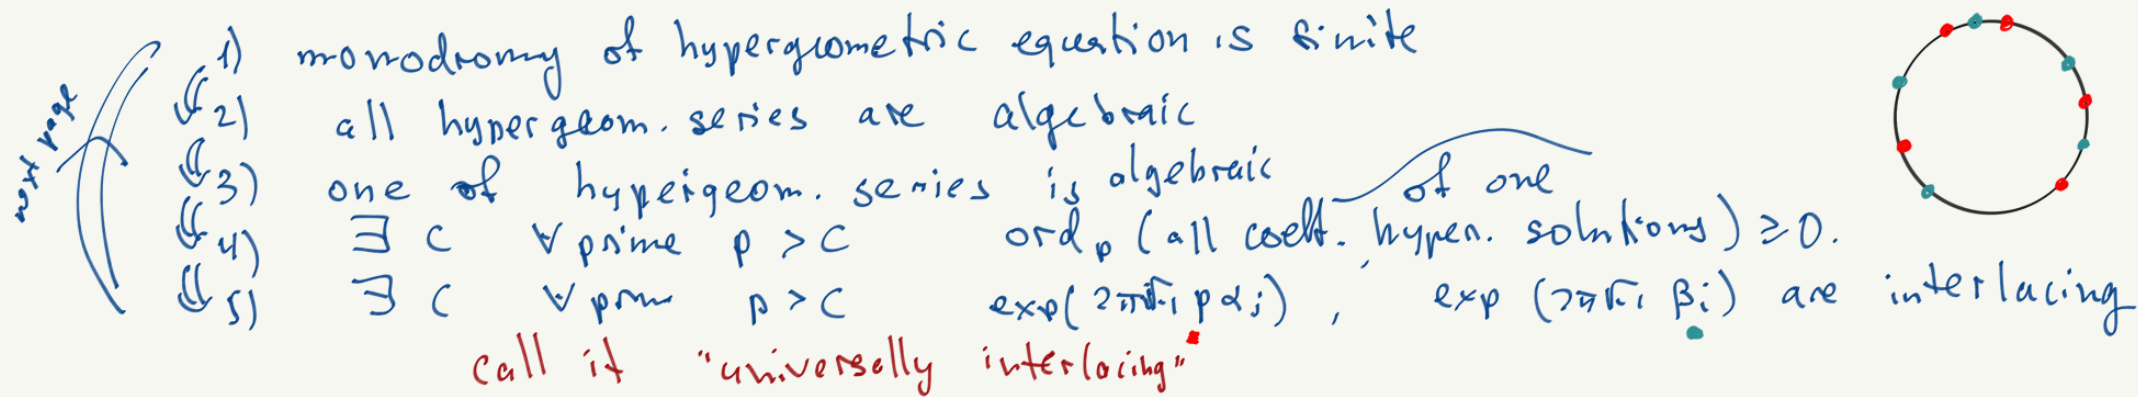 1) monodromy of hypergeometric equation is finite
⇓ 2) all hypergeom. series are algebraic
⇓ 3) one of hypergeom. series is algebraic
⇓ 4) ∃ C ∀ prime p > C ord_p (all coeff. of one hyper. solutions) ≥ 0.
⇓ 5) ∃ C ∀ prime p > C exp(2π√-1 p αj), exp(2π√-1 βi) are interlacing
call it "universally interlacing"
next page